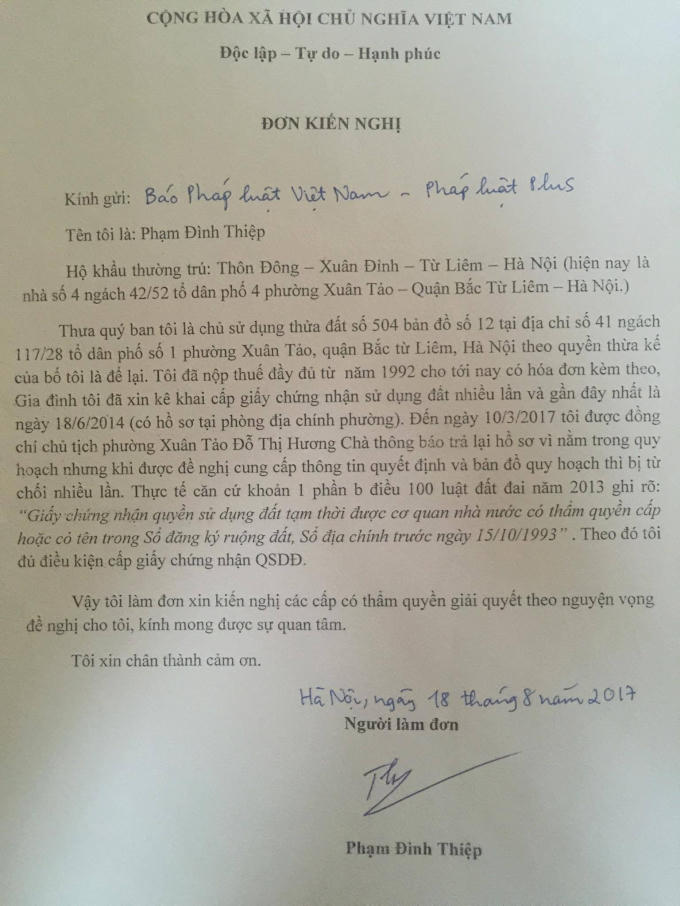 CỘNG HÒA XÃ HỘI CHỦ NGHĨA VIỆT NAM
Độc lập – Tự do – Hạnh phúc
ĐƠN KIẾN NGHỊ
Kính gửi: Báo Pháp luật Việt Nam – Pháp luật Plus
Tên tôi là: Phạm Đình Thiệp
Hộ khẩu thường trú: Thôn Đông – Xuân Đỉnh – Từ Liêm – Hà Nội (hiện nay là
nhà số 4 ngách 42/52 tổ dân phố 4 phường Xuân Tảo – Quận Bắc Từ Liêm – Hà Nội.)
Thưa quý ban tôi là chủ sử dụng thửa đất số 504 bản đồ số 12 tại địa chỉ số 41 ngách
117/28 tổ dân phố số 1 phường Xuân Tảo, quận Bắc từ Liêm, Hà Nội theo quyền thừa kế
của bố tôi là để lại. Tôi đã nộp thuế đầy đủ từ năm 1992 cho tới nay có hóa đơn kèm theo,
Gia đình tôi đã xin kê khai cấp giấy chứng nhận sử dụng đất nhiều lần và gần đây nhất là
ngày 18/6/2014 (có hồ sơ tại phòng địa chính phường). Đến ngày 10/3/2017 tôi được đồng
chí chủ tịch phường Xuân Tảo Đỗ Thị Hương Chà thông báo trả lại hồ sơ vì nằm trong quy
hoạch nhưng khi được đề nghị cung cấp thông tin quyết định và bản đồ quy hoạch thì bị từ
chối nhiều lần. Thực tế căn cứ khoản 1 phần b điều 100 luật đất đai năm 2013 ghi rõ:
“Giấy chứng nhận quyền sử dụng đất tạm thời được cơ quan nhà nước có thẩm quyền cấp
hoặc có tên trong Sổ đăng ký ruộng đất, Sổ địa chính trước ngày 15/10/1993” . Theo đó tôi
đủ điều kiện cấp giấy chứng nhận QSDĐ.
Vậy tôi làm đơn xin kiến nghị các cấp có thẩm quyền giải quyết theo nguyện vọng
đề nghị cho tôi, kính mong được sự quan tâm.
Tôi xin chân thành cảm ơn.
Hà Nội, ngày 18 tháng 8 năm 2017
Người làm đơn
Phạm Đình Thiệp